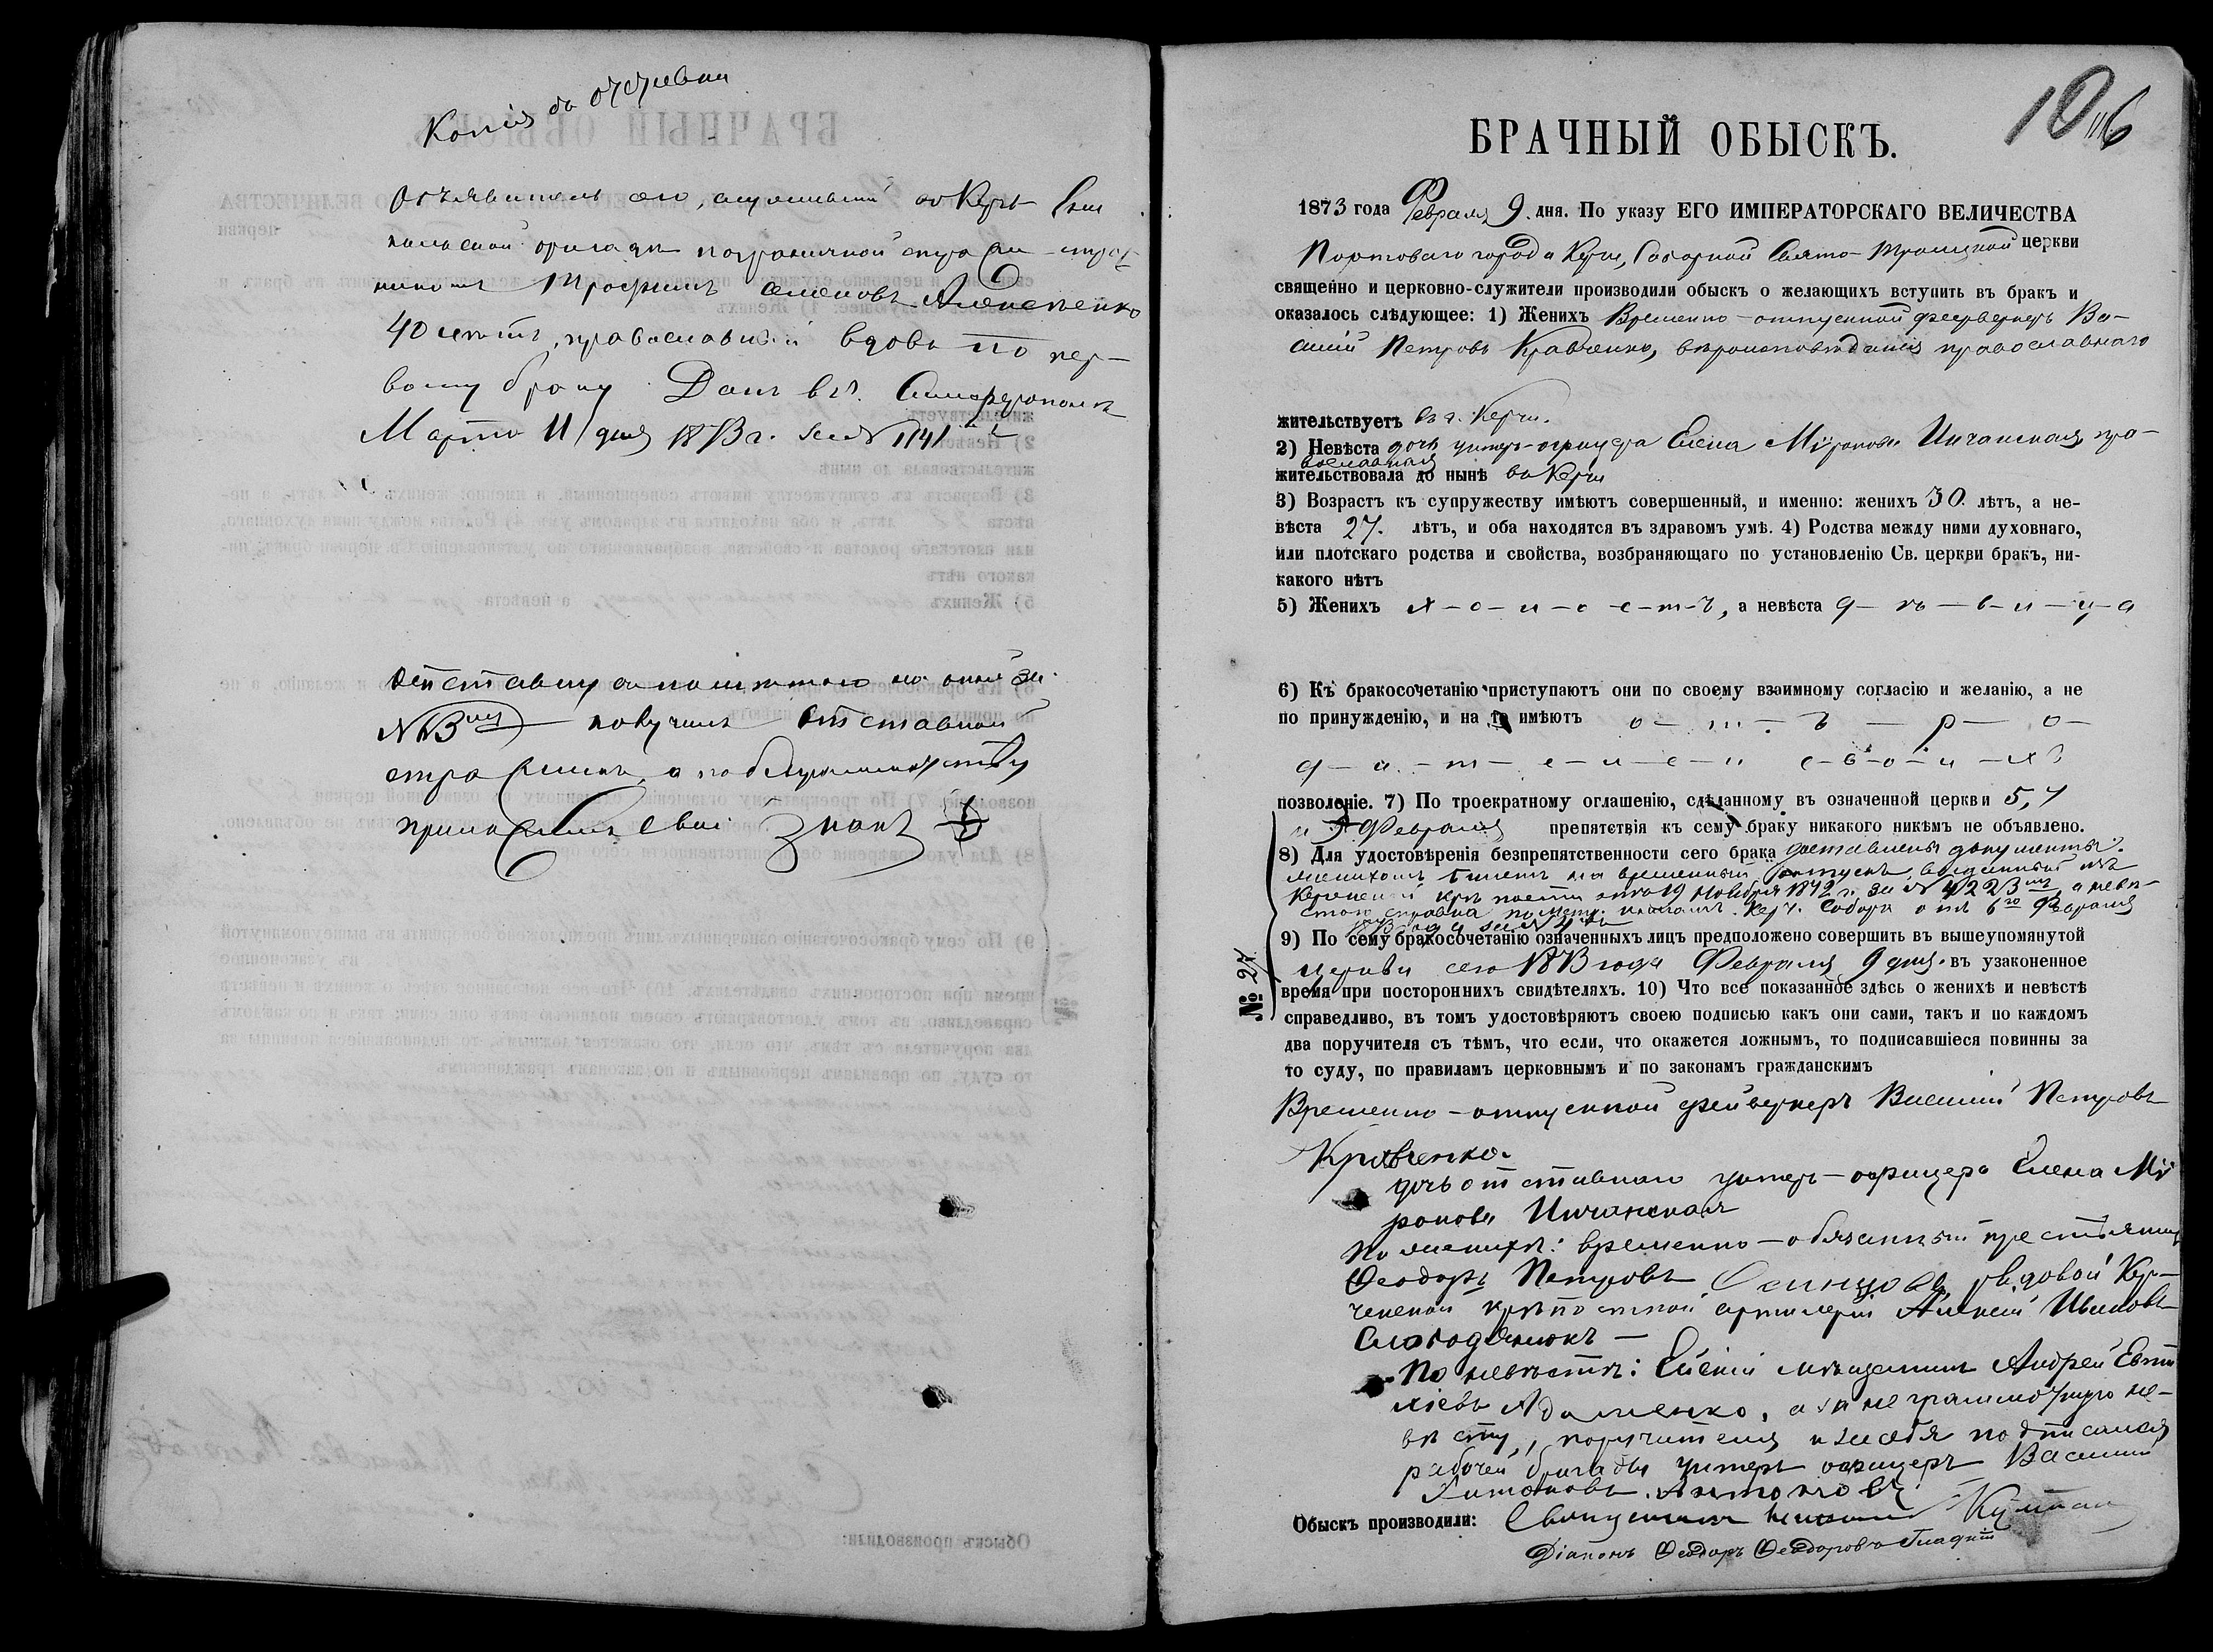 Копія съ отставки
Объявитель сего, служившій въ Керчь Ени
кальской бригадѣ пограничной стражи – страж
никомъ Трофимъ Семеновъ Алексѣенко
40 лѣтъ, православный вдовъ по пер-
вому браку. Данъ въ г. Симферополѣ
Марта 11 дня 1873 г. за № 1141
получилъ отставной
стражникъ, а по безграмотству
приложилъ свой знакъ
БРАЧНЫЙ ОБЫСКЪ.
1873 года Февраля 9. дня. По указу ЕГО ИМПЕРАТОРСКАГО ВЕЛИЧЕСТВА
Портоваго города Керчи, Соборной Свято-Троицкой церкви
священно и церковно-служители производили обыскъ о желающихъ вступить въ бракъ и
оказалось слѣдующее: 1) Женихъ Временно-отпускной фейерверкеръ Ва-
силій Петровъ Кравченко, вѣроисповѣданія православнаго
жительствуетъ въ г. Керчи.
2) Невѣста дочь унтеръ-офицера Елена Мѵронова Инчанская, пра-
вославная
жительствовала до нынѣ въ Керчи
3) Возрастъ къ супружеству имѣютъ совершенный, и именно: женихъ 30. лѣтъ, а не-
вѣста 27. лѣтъ, и оба находятся въ здравомъ умѣ. 4) Родства между ними духовнаго,
или плотскаго родства и свойства, возбраняющаго по установленію Св. церкви бракъ, ни-
какого нѣтъ
5) Женихъ х-о-л-о-с-т-ъ, а невѣста д-ѣ-в-и-ц-а
6) Къ бракосочетанію приступаютъ они по своему взаимному согласію и желанію, а не
по принужденію, и на то имѣютъ о-т-ъ-р-о-
д-и-т-е-л-е-й с-в-о-и-хъ
позволеніе. 7) По троекратному оглашенію, сдѣланному въ означенной церкви 5, 4
и Февраля препятствія къ сему браку никакого никѣмъ не объявлено.
8) Для удостовѣренія безпрепятственности сего брака доставлены документы:
женихомъ билетъ на временный отпускъ, выданный изъ
Керченской крѣпости отъ 19 Ноября 1872 г. за № 4223, а невѣ-
стою справка по метр. книгамъ Керч. Собора отъ 6го Февраля
1873 года за №
9) По сему бракосочетанію означенныхъ лицъ предположено совершить въ вышеупомянутой
церкви сего 1873 года Февраля 9 дня. въ узаконенное
время при постороннихъ свидѣтеляхъ. 10) Что все показанное здѣсь о женихѣ и невѣстѣ
справедливо, въ томъ удостовѣряютъ своею подписью какъ они сами, такъ и по каждомъ
два поручителя съ тѣмъ, что если, что окажется ложнымъ, то подписавшіеся повинны за
то суду, по правиламъ церковнымъ и по законамъ гражданскимъ
№ 27.
Временно-отпускной фейверкеръ Василий Петровъ
Кравченко.
дочь отставнаго унтеръ-офицера Елена Мѵ
ронова Инчанская
По женихѣ: временно-обязанный крестьянинъ
Ѳеодоръ Петровъ рядовой Кер-
ченской крѣпостной артилеріи Алексѣй Ивановъ
Слободенюкъ –
По невѣстѣ: Ейскій мѣщанинъ Андрей Евти
хіевъ Адаменко, а за неграмотную не-
вѣсту, поручителя и за себя подписался
рабочей бригады унтеръ офицеръ Василий
Антоновъ
Обыскъ производили: Священникъ
Діаконъ Ѳеодоръ Ѳеодоровъ